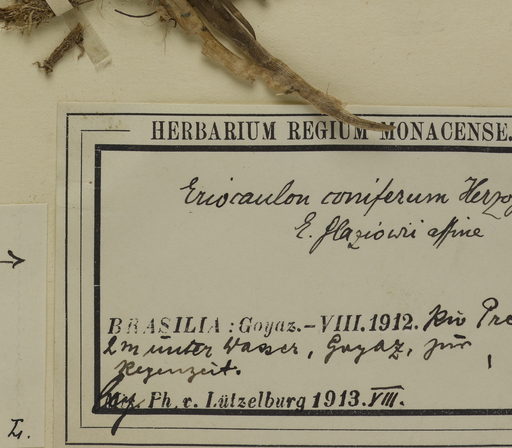 HERBARIUM REGIUM MONACENSE.
Eriocaulon coniferum Herzog
E. Glaziowii affine
BRASILIA: Goyaz. - VIII. 1912. Rio Pre
2 m unter Wasser, Goyaz, zur
Regenzeit.
leg. Ph. v. Lützelburg 1913. VIII.